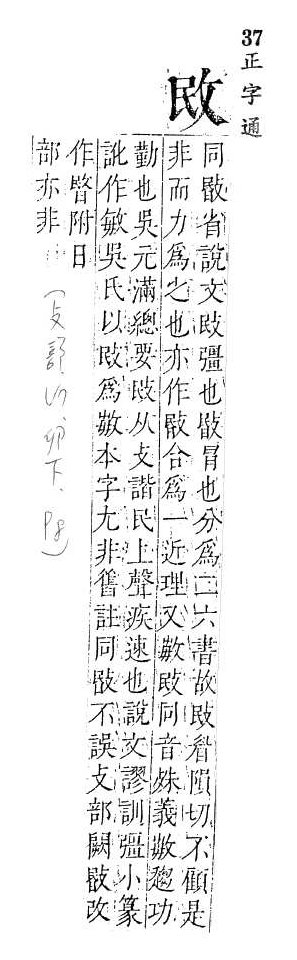 37
正字通
敃
同敯省說文敃彊也敯冒也分爲二六書故敃眉隕切不顧是
非而力爲之也亦作敯合爲一近理又敃同音殊義敄勉功
勤也吳元滿總要敃从攴諧民上聲疾速也說文謬訓彊小篆
訛作敏吳氏以敃爲敄本字尤非舊註同敯不誤攴部闕敯改
作暋附日
部亦非